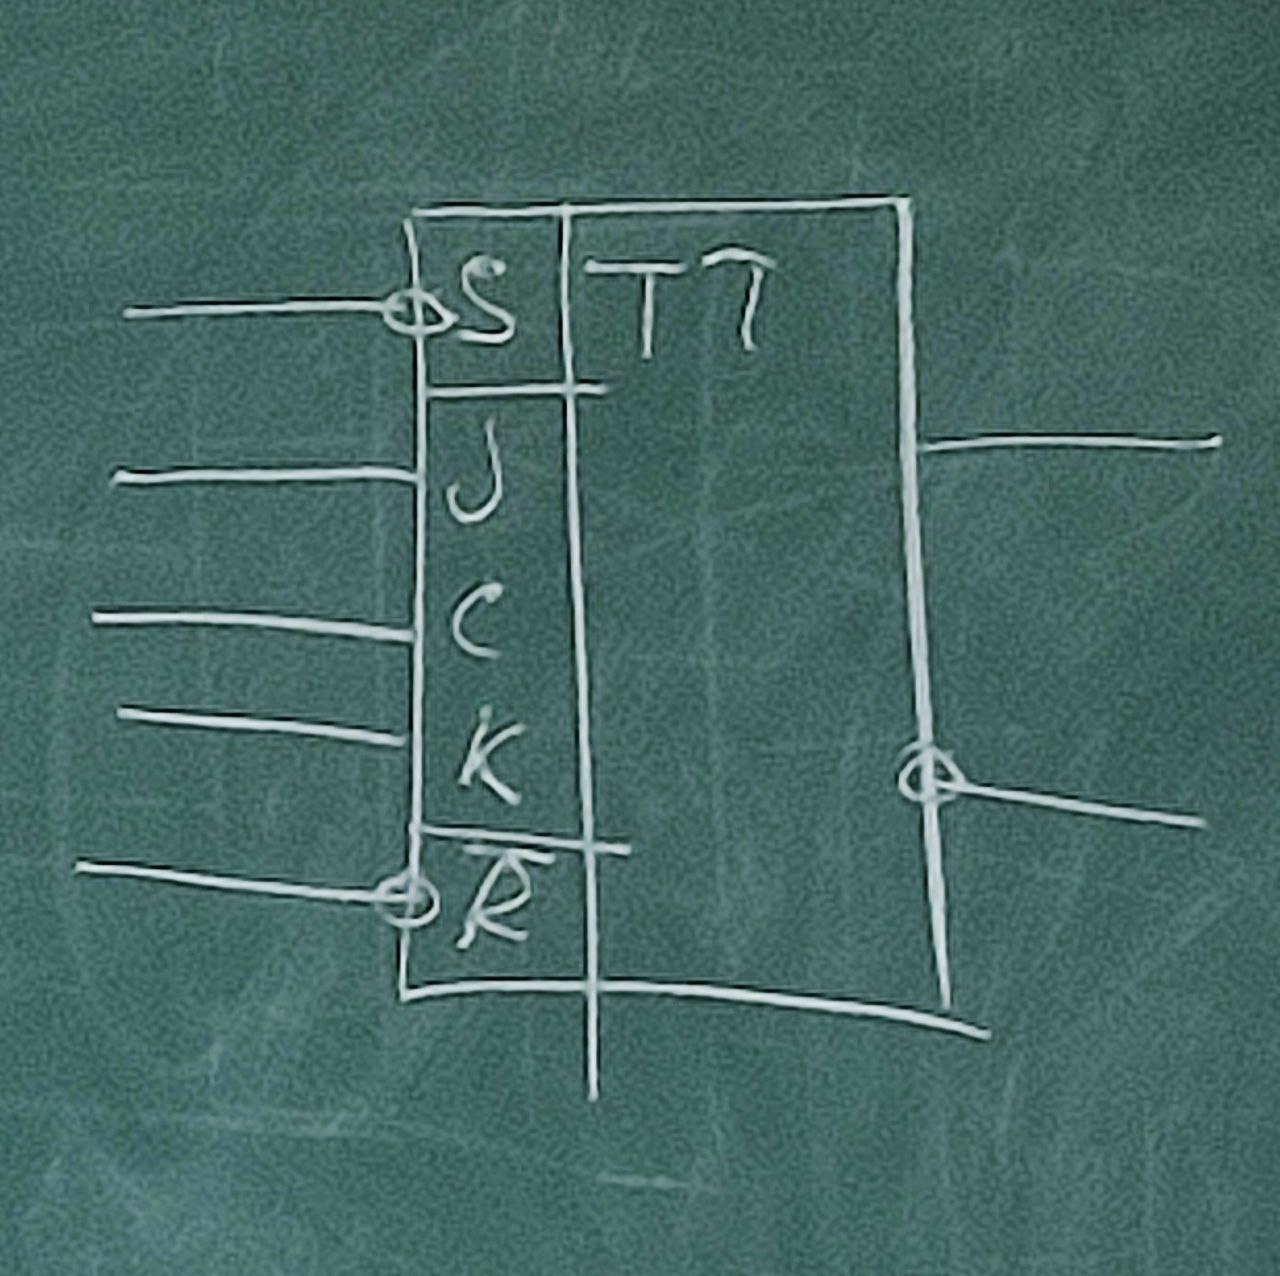 S TT
J
C
K
R̅